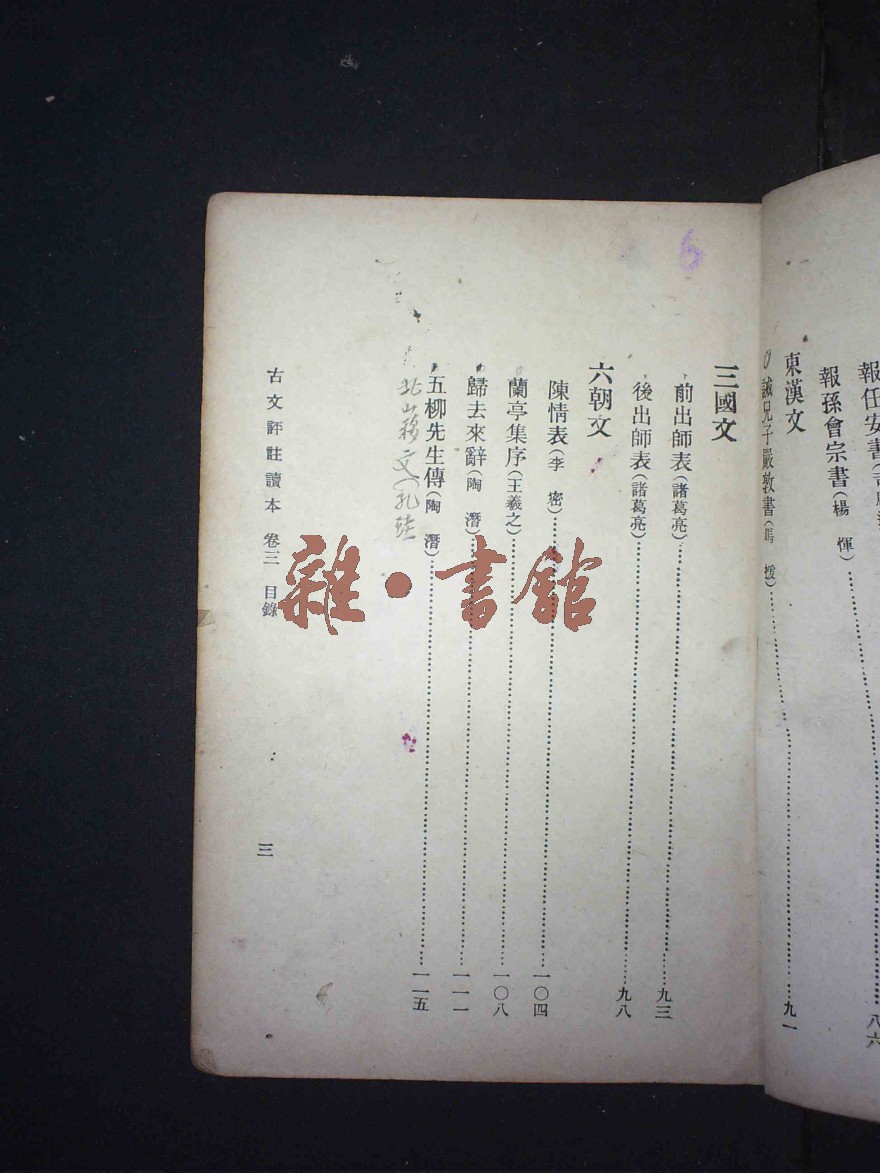 報任安書
八六
報孫會宗書(楊 惲)
東漢文
誡兄子嚴敦書(馬 援)
九一
三國文
前出師表(諸葛亮)
九三
後出師表(諸葛亮)
九八
六朝文
陳情表(李 密)
一〇四
蘭亭集序(王羲之)
一〇八
歸去來辭(陶 潛)
一一一
五柳先生傳(陶 潛)
一一五
北山移文(孔珪
古文評註讀本 卷三 目錄
三
雜·書館
6